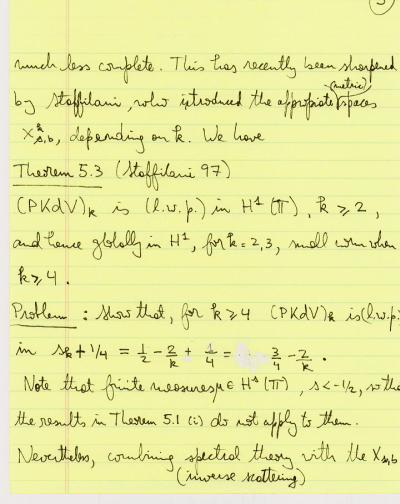 5
much less complete. This has recently been sharpened
by Staffilani, who introduced the appropriate (metric) spaces
X^k_{s,b}, depending on k. We have
Theorem 5.3 (Staffilani 97)
(PKdV)_k is (l.w.p.) in H^1(π), k ≥ 2,
and hence globally in H^1, for k = 2,3, small when
k ≥ 4.
Problem : Show that, for k ≥ 4 (PKdV)_k is (l.w.p
in s_k + 1/4 = 1/2 - 2/k + 1/4 = 3/4 - 2/k.
Note that finite measures μ ∈ H^s(π), s < -1/2, so tha
the results in Theorem 5.1 (i) do not apply to them.
Nevertheless, combining spectral theory with the X_{s,b}
(inverse scattering)